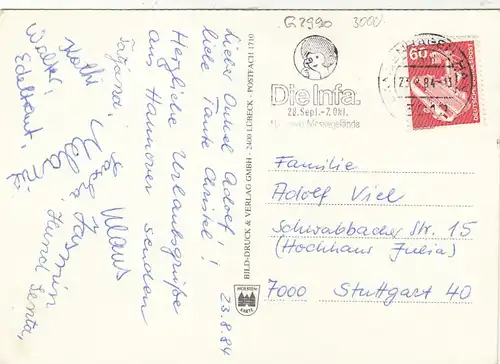 G2990 3000
Die Infa.
28. Sept.-7. Okt.
Messegelände
60
23.-8.84
Lieber Onkel Adolf!
liebe Tante Christel!
Herzliche Urlaubsgrüße
aus Hannover senden
Klaus
Tatjana,
Kathi
Walter,
Edeltraut,
Jasmin
Hund Senta,
23.8.84
BILD-DRUCK & VERLAG GMBH - 2400 LÜBECK - POSTFACH 1710
HOLSTEN
KARTE
Familie
Adolf Viel
Schwabbacher Str. 15
(Hochhaus Julia)
7000 Stuttgart 40